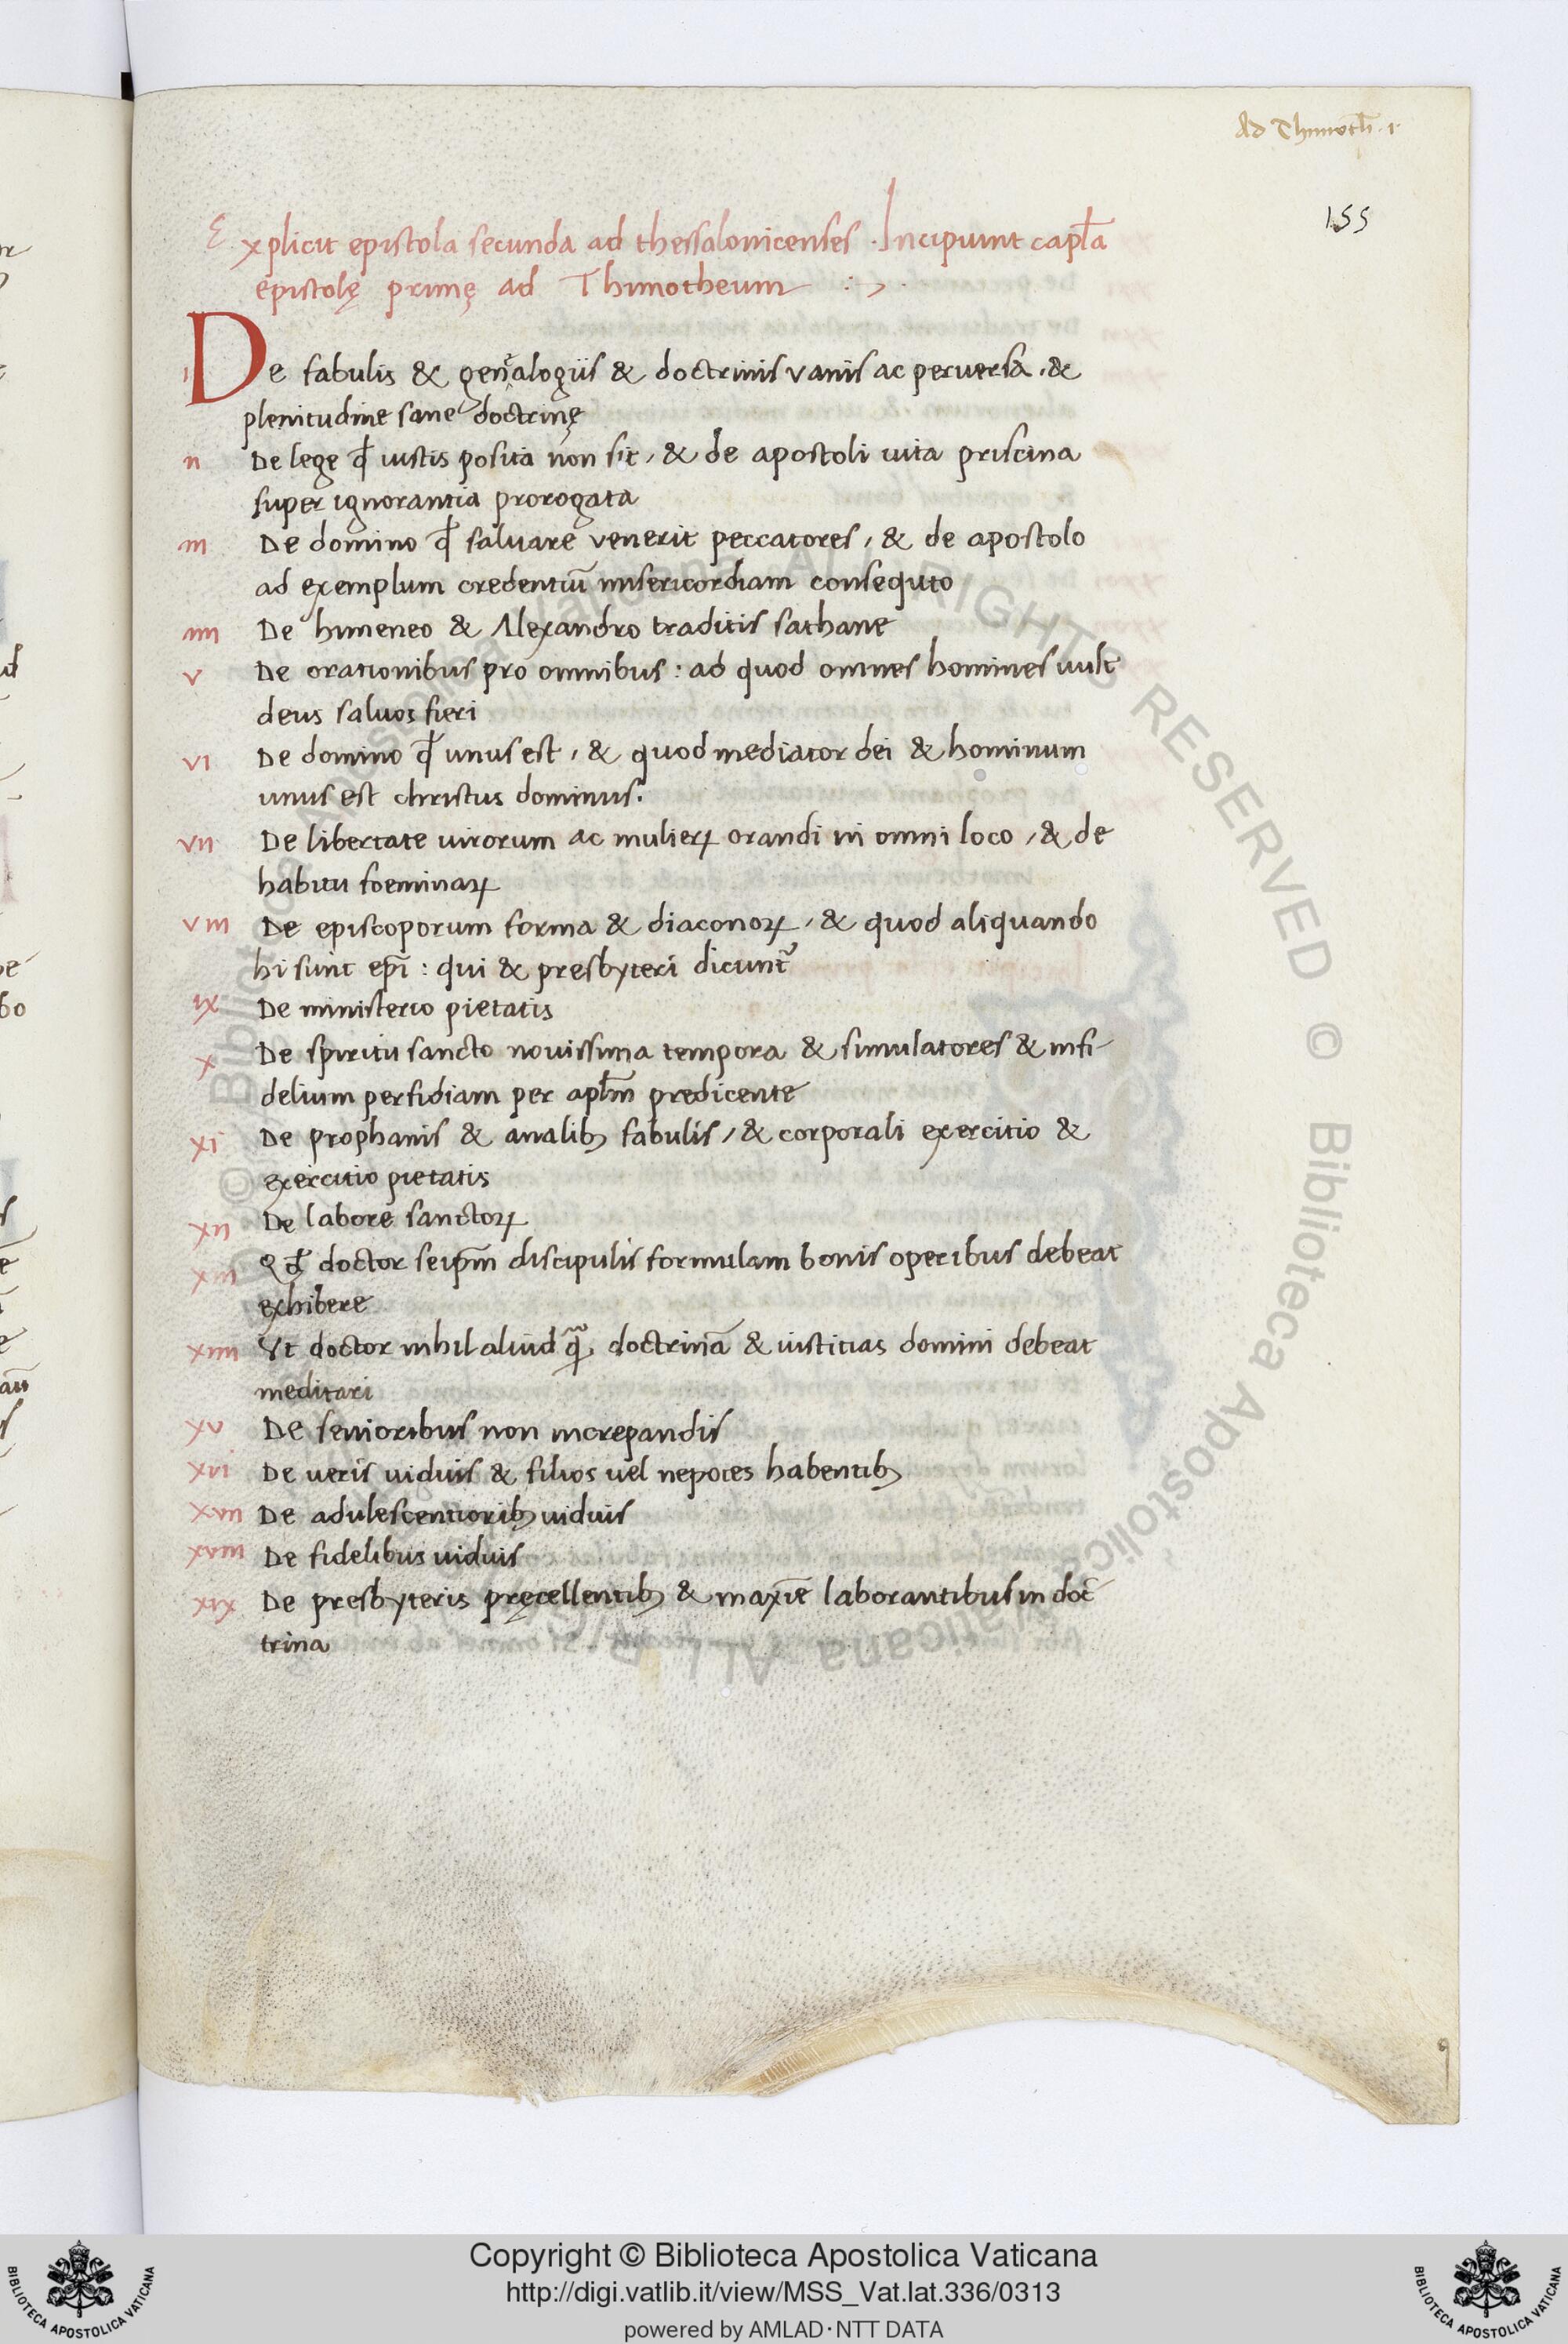 Ad Thimoth̄ · 1 ·
155
Explicit epistola secunda ad thessalonicenses · Incipiunt capl̄a
epistolę primę ad Thimotheum
I De fabulis & genealogiis & doctrinis vanis ac perversa · &
plenitudine sane doctrinę
II De lege qđ iustis posita non sit, & de apostoli vita priscina
super ignorantia prorogata
III De domino qđ salvare venerit peccatores, & de apostolo
ad exemplum credentiū misericordiam consequto
IIII De himeneo & Alexandro traditis sathane
V De orationibus pro omnibus : ad quod omnes homines vult
deus salvos fieri
VI De domino qđ unus est, & quod mediator dei & hominum
unus est christus dominus.
VII De libertate virorum ac mulieꝝ orandi in omni loco, & de
habitu foeminaꝝ
VIII De episcoporum forma & diaconoꝝ, & quod aliquando
hi sunt ep̄i : qui & presbyteri dicunt᷑
IX De ministerio pietatis
X De spiritu sancto novissima tempora & simulatores & infi-
delium perfidiam per apl̄m predicente
XI De prophanis & analibꝫ fabulis, & corporali exercitio &
exercitio pietatis
XII De labore sanctoꝝ
XIII Qđ doctor seip̄m discipulis formulam bonis operibus debeat
exhibere
XIIII Ut doctor nihil aliud quā doctrinā & iusticias domini debeat
meditari
XV De senioribus non increpandis
XVI De veris viduis & filios vel nepotes habentibꝫ
XVII De adulescentioribꝫ viduis
XVIII De fidelibus viduis
XIX De presbyteris pręcellentibꝫ & maxīe laborantibus in doc-
trina
Copyright © Biblioteca Apostolica Vaticana
http://digi.vatlib.it/view/MSS_Vat.lat.336/0313
powered by AMLAD·NTT DATA